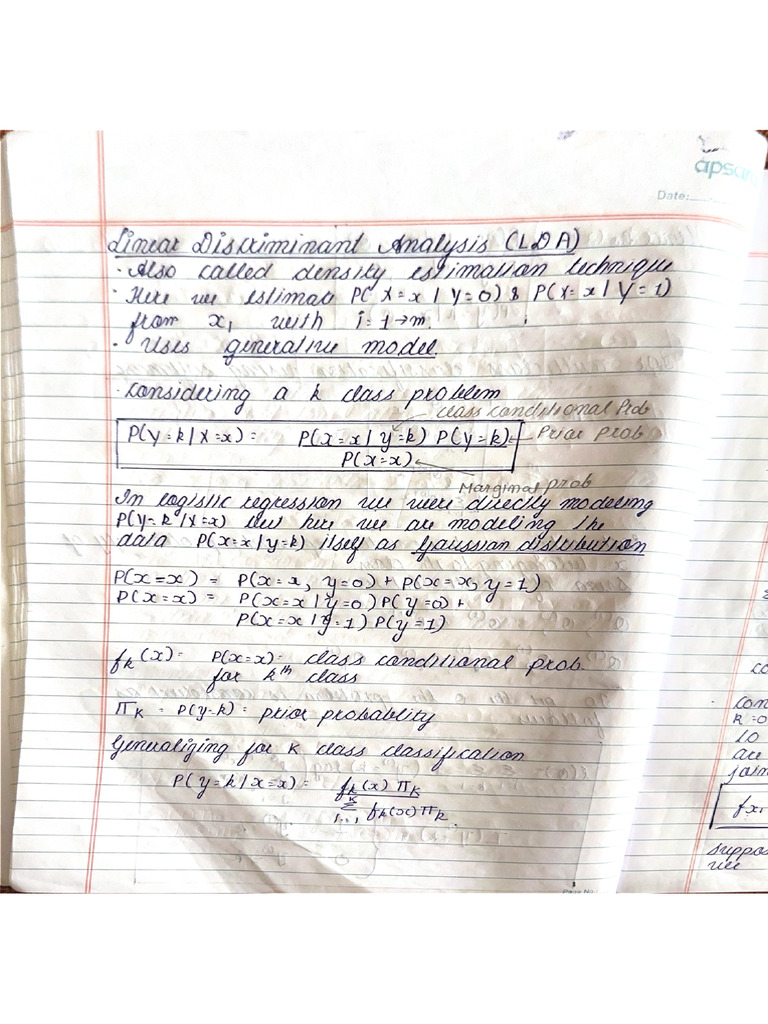 apsar
Date:
Linear Discriminant Analysis (LDA)
· Also called density estimation technique
· Here we estimate P(X=x | Y=0) & P(X=x | Y=1)
from x, with i=1→m.
· Uses generative model.
· Considering a k class problem
class conditional Prob
P(Y=k | X=x) = P(X=x | y=k) P(Y=k) ← Prior Prob
P(X=x)
Marginal prob
In logistic regression we were directly modeling
P(Y=k | X=x) but here we are modeling the
data P(X=x | y=k) itself as Gaussian distribution
P(X=x) = P(X=x, y=0) + P(X=x, y=1)
P(X=x) = P(X=x | y=0) P(y=0) +
P(X=x | y=1) P(y=1)
fk(x) = P(X=x) = class conditional prob.
for kth class
πk = P(y=k) = prior probability
Generalizing for K class classification
P(y=k | X=x) = fk(x) πk
K
Σ fk(x) πk
i=1
Page No
co
con
k=0
to
are
join
fx,
suppo
we